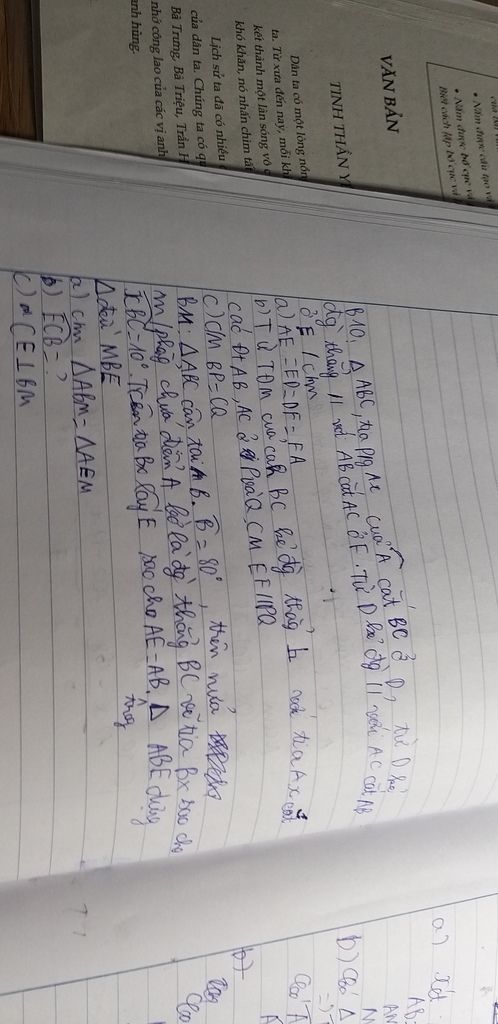 của bố
• Nắm được cấu tạo và
• Nắm được bố cục và
Biết cách lập bố cục và
VĂN BẢN
TINH THẦN Y
Dân ta có một lòng nồn
ta. Từ xưa đến nay, mỗi kh
kết thành một làn sóng vô c
khó khăn, nó nhấn chìm tất
Lịch sử ta đã có nhiều
của dân ta. Chúng ta có qu
Bà Trưng, Bà Triệu, Trần H
nhớ công lao của các vị anh
anh hùng.
B10. Δ ABC, tia p/g Ax của A cắt BC ở D, từ D kẻ
đg thẳng // với AB cắt AC ở F. Từ D kẻ đg // với AC cắt AB
ở E. Cm
a) AE = ED = DF = FA
b) Từ TĐm của cạnh BC kẻ đg thẳng ⊥ với tia Ax cắt
các Đt AB, AC ở P và Q. CM EF // PQ
c) CM BP = CQ
B11. Δ ABC cân tại B. B = 80°, trên nửa
m phẳng chứa điểm A bờ là đg thẳng BC vẽ tia Bx sao cho
xBC = 10°. Trên tia Bx lấy E sao cho AE = AB. Δ ABE dựng
trong
Δ đều MBE
a) cm ΔABM = ΔAEM
b) ECB = ?
c) CE ⊥ BM
a) Xét
AB
b) Có Δ
b)